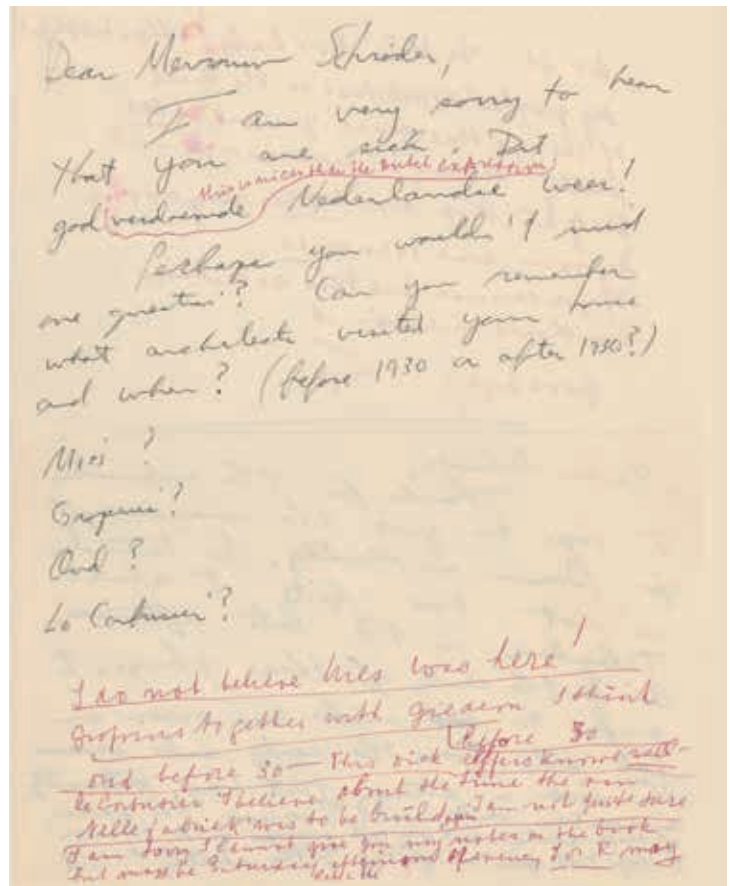 Dear Mevrouw Schröder,
I am very sorry to hear
that you are sick. Dat
this is nicer than the Dutch expression!
godverdoemde Nederlandse weer!
Perhaps you wouldn't mind
one question? Can you remember
what architects visited your house
and when? (before 1930 or after 1930?)
Mies?
Gropius?
Oud?
Le Corbusier?
I do not believe Mies was here!
Gropius together with giedion I think
before 30
oud before 30 — This
le Corbusier I believe about the time the van
Nelle fabriek was to be build, I am not quite sure
I am sorry I cannot give you my notes on the book
but maybe Saturday afternoon or evening for R may